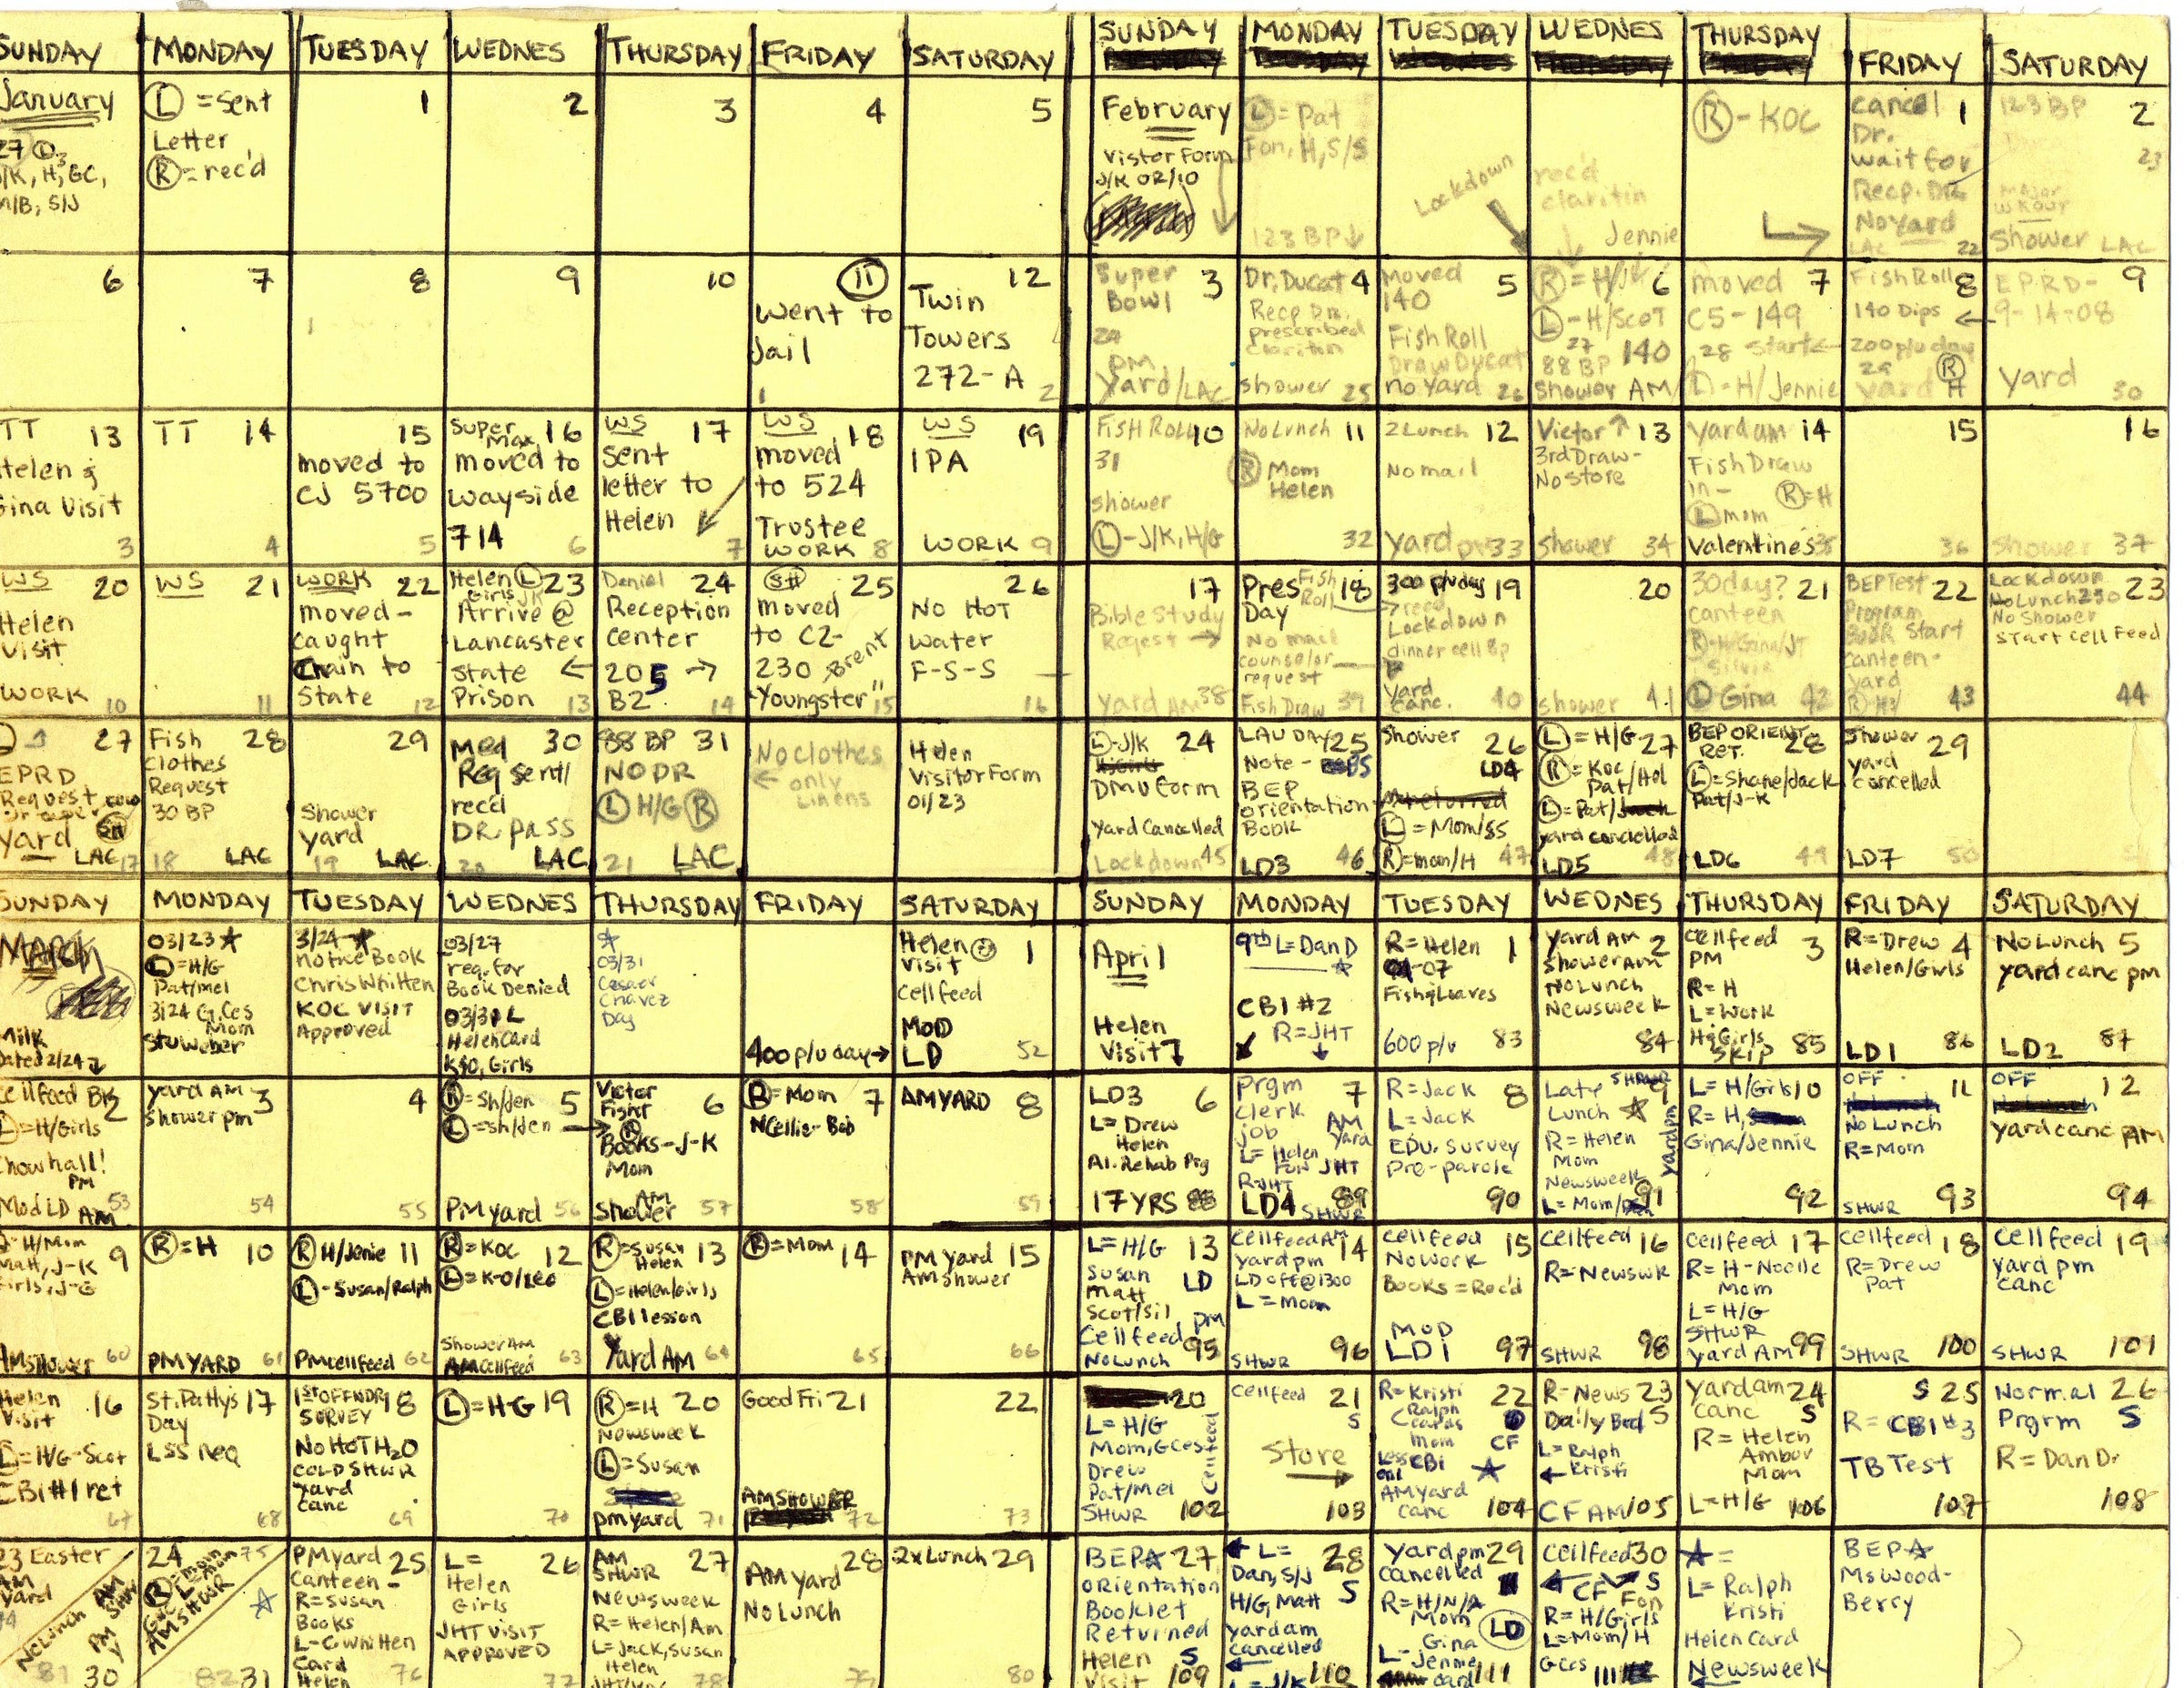 SUNDAY MONDAY TUESDAY WEDNES THURSDAY FRIDAY SATURDAY
January
27
J/K, H, GC,
M/B, S/J
Ⓛ = Sent
Letter
Ⓡ = rec'd
1
2
3
4
5
6
7
8
9
10
11
went to
Jail
1
12
Twin
Towers
272-A
2
TT 13
Helen &
Gina Visit
3
TT 14
4
15
moved to
CJ 5700
5
Super Max 16
moved to
Wayside
714
6
WS 17
Sent
letter to
Helen
7
WS 18
moved
to 524
Trustee
WORK 8
WS 19
IPA
WORK 9
WS 20
Helen
Visit
WORK 10
WS 21
11
WORK 22
moved-
caught
Chain to
State 12
Helen Ⓛ 23
Girls JK
Arrive @
Lancaster
State
Prison 13
Daniel 24
Reception
Center
205 →
B2 14
S# 25
moved
to C2-
230 Brent
"Youngster" 15
26
No Hot
Water
F-S-S
16
27
EPRD
Request
Yard
LAC 17
Fish 28
Clothes
Request
30 BP
18 LAC
29
Shower
yard
19 LAC
Med 30
Req sent/
rec'd
DR. PASS
20 LAC
88 BP 31
NO DR
Ⓛ H/G Ⓡ
21 LAC
No clothes
← only
Linens
Helen
Visitor Form
01/23
SUNDAY MONDAY TUESDAY WEDNES THURSDAY FRIDAY SATURDAY
February
Vistor Form
J/K 02/10
Ⓛ = Pat
Fon, H, S/S
123 BP ↓
Lockdown
rec'd
claritin
Jennie
Ⓡ - KOC
Cancel 1
Dr.
Wait for
Recp. DR.
No Yard
LAC 22
123 BP 2
23
Major
Shower LAC
Super 3
Bowl
24
PM
Yard/LAC
Dr. Ducat 4
Recp Dr.
prescribed
Claritin
shower 25
Moved 5
140
Fish Roll
Draw Ducat
no yard 26
Ⓡ = H/J 6
Ⓛ - H/Scot
27 140
88 BP
Shower AM
moved 7
C5-149
28 Start ←
Ⓛ - H/Jennie
Fish Roll 8
140 Dips ←
200 p/u day
29 Ⓡ
yard H
EPRD- 9
9-14-08
Yard 30
Fish Roll 10
31
shower
Ⓛ - J/K, H/G
No Lunch 11
Ⓡ Mom
Helen
32
2 Lunch 12
No mail
Yard pm 33
Victor ↑ 13
3rd Draw-
No store
Shower 34
Yard am 14
Fish Draw
in- Ⓡ = H
Ⓛ mom
Valentines 35
15
36
16
Shower 37
17
Bible Study
Reqest →
Yard AM 38
Pres 18
Day Fish Roll
No mail
counselor
request
Fish Draw 39
300 p/u day 19
→ read
Lockdown
dinner cell 8p
Yard
canc. 40
20
shower 41
30 day? 21
Canteen
Ⓡ - H/Gina/JT
Silvia
Ⓛ Gina 42
BEP Test 22
Program
Book Start
canteen-
yard
43
Lockdown 23
No Lunch 230
No Shower
Start Cell Feed
44
Ⓛ - J/K 24
DMV form
Yard Cancelled
Lockdown 45
LAU DAY 25
Note -
BEP
orientation
Book
LD3 46
Shower 26
LD4
Ⓛ = Mom/SS
Ⓡ = mom/H 47
Ⓛ = H/G 27
Ⓡ = Koc
Pat/Hel
Ⓛ = Pat/Jack
yard cancelled
LD5 48
BEP ORIENT 28
RET.
Ⓛ = Shane/Jack
Pat/J-K
LD6 49
Shower 29
yard
cancelled
LD7 50
SUNDAY MONDAY TUESDAY WEDNES THURSDAY FRIDAY SATURDAY
MARCH
Milk
Dated 2/24 ↓
03/23 ☆
Ⓛ = H/G
Pat/mel
3/24 G, Ces
Mom
Stu Weber
3/24 ☆
notice Book
Chris Whitten
KOC VISIT
Approved
03/27
req. for
Book Denied
03/31 L
Helen Card
KSO, Girls
☆
03/31
Cesaer
Chavez
Day
400 p/u day →
Helen ☺ 1
Visit
Cell feed
MOD
LD 52
Cellfeed BK 2
Ⓛ = H/Girls
Chow hall!
PM
Mod LD AM 53
yard AM 3
Shower pm
54
4
55
Ⓡ = Sh/Jen 5
Ⓛ = Sh/Jen →
PM yard 56
Victor 6
Fight
Ⓡ
Books - J-K
Mom
AM
Shower 57
Ⓡ = Mom 7
N Cellie - Bob
58
AM YARD 8
59
H/Mom
Matt, J-K 9
Girls, J-G
AM Shower 60
Ⓡ = H 10
PM YARD 61
Ⓡ H/Jenie 11
Ⓛ - Susan/Ralph
PM cellfeed 62
Ⓡ = KOC 12
Ⓛ = K-O/Leo
Shower AM
AM Cellfeed 63
Ⓡ = Susan 13
Helen
Ⓛ = Helen/Girls
CBI lesson
Yard AM 64
Ⓡ = Mom 14
65
PM Yard 15
AM Shower
66
Helen 16
Visit
Ⓛ = H/G-Scot
CBI #1 ret
67
St. Pattys 17
Day
LSS REQ
68
1st OFFNDR 18
SURVEY
No HOT H2O
COLD SHWR
Yard
canc 69
Ⓛ = HG 19
70
Ⓡ = H 20
Newsweek
Ⓛ = Susan
pm yard 71
Good Fri 21
AM SHOWER
72
22
73
23 Easter
AM
yard
74
No Lunch AM SHW
PM
81 30
24 75
Ⓡ = mom
L = mom
AM SHWR
☆
82 31
PM yard 25
Canteen -
R = Susan
Books
L - C. Whitten
Card
Helen 76
L = 26
Helen
Girls
JHT VISIT
APPROVED
77
AM 27
SHWR
Newsweek
R = Helen/Am
L = Jack, Susan
Helen
78
28
AM yard
No Lunch
79
2x Lunch 29
80
SUNDAY MONDAY TUESDAY WEDNES THURSDAY FRIDAY SATURDAY
April
Helen
Visit
9th L = Dan D
☆
CBI #2
R = JHT
↓
R = Helen 1
07
Fish & Loaves
600 p/u 83
Yard AM 2
Shower AM
No Lunch
Newsweek
84
Cellfeed 3
PM
R = H
L = Work
H & Girls
Skip 85
R = Drew 4
Helen/Girls
LD1 86
No Lunch 5
yard canc pm
LD2 87
LD3 6
L = Drew
Helen
Al. Rehab Prg
17 YRS 88
Prgm 7
Clerk
job AM
Yard
L = Helen
Fon JHT
R = JHT
LD4 89
SHWR
R = Jack 8
L = Jack
EDU. Survey
Pre-parole
90
Late SHWR 9
Lunch ☆
R = Helen
Mom
Newsweek
L = Mom/
yard pm
91
L = H/Girls 10
R = H,
Gina/Jennie
92
OFF 11
No Lunch
R = Mom
SHWR 93
OFF 12
yard canc AM
94
L = H/G 13
Susan LD
Matt
Scot/Sil
Cellfeed pm
No Lunch 95
Cellfeed AM 14
yard pm
LD off @ 1300
L = Mom
SHWR 96
Cellfeed 15
No Work
Books = Rec'd
MOD
LD1 97
Cellfeed 16
R = Newswk
SHWR 98
Cellfeed 17
R = H-Noelle
Mom
L = H/G
SHWR
Yard AM 99
Cellfeed 18
R = Drew
Pat
SHWR 100
Cellfeed 19
yard pm
canc
SHWR 101
20
L = H/G
Mom, GCes
Drew
Pat/Mel
Cellfeed
SHWR 102
Cellfeed 21
S
Store
→
103
R = Kristi 22
Ralph
Cards
Mom CF
CBI ☆
AM yard
canc 104
R = News 23
Daily Bred S
L = Ralph
← Kristi
CF AM 105
Yard am 24
canc S
R = Helen
Amber
Mom
L = H/G 106
S 25
R = CBI #3
TB Test
107
Normal 26
Prgrm S
R = Dan D.
108
BEP ☆ 27
Orientation
Booklet
Returned
Helen S
Visit 109
← L = 28
Dan, S/J S
H/G, Matt
yard am
cancelled
←
L = J/K 110
Yard pm 29
cancelled
R = H/N/A
Mom LD
Gina
L - Jennie
card 111
Cellfeed 30
← CF S
Fon
R = H/Girls
L = Mom/H
GCes
☆ =
L = Ralph
Kristi
Helen Card
Newsweek
←
BEP ☆
Ms Wood-
Berry